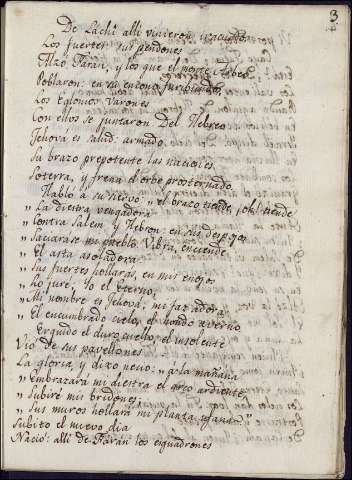 3
De Lachi alli vinieron
Los fuertes: sus pendones
Alzo Farán, y los que el monte Tabor
Poblaron: en su encono furibundos,
Los Egionios Varones
Con ellos se juntaron Del Hebreo
Jehová es salud: armado
Su brazo prepotente las naciones
Soterra, y frena el orbe prosternado.
Habló a su siervo: „ el brazo tiende, ¡oh! tiende
„ La diestra vengadora
„ Contra Salem, y Hebron: en sus despojos
„ Saciarase mi pueblo. Vibra, enciende
„ El asta asoladora
„ Sus fuertes hollarás, en mis enojos
„ Lo juré, Yo el Eterno,
„ Mi nombre es Jehová: mi faz adora
„ El encumbrado cielo, el hondo averno
Erguido el duro cuello, el insolente
Vio de sus pavellones
La gloria, y dixo necio: „ a la mañana
„ Embrazará mi diestra el arco ardiente,
„ Subiré mis bridones:
„ Sus muros hollará mi planta ufana.."
Subito el nuevo dia
Nació: alli de Farán los esquadrones